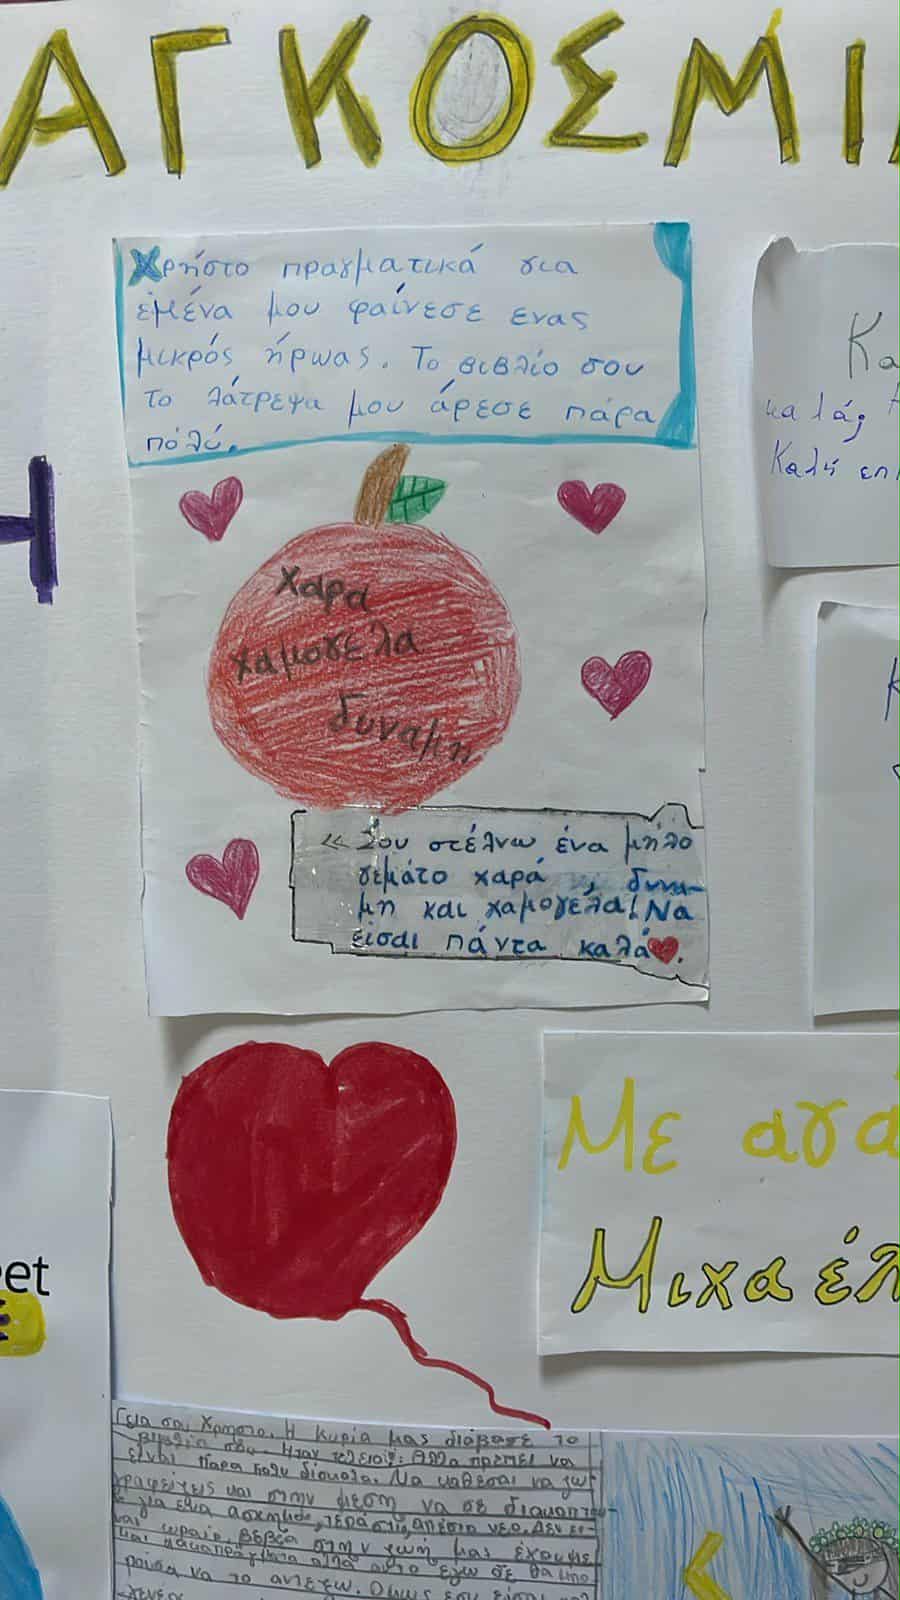 ΑΓΚΟΣΜΙ
Χρήστο πραγματικά για
έμένα μου φαίνεσε ενας
μικρός ήρωας. Το βιβλίο σου
το λάτρεψα μου άρεσε πάρα
πόλύ.
Χαρα
χαμογελα
δυναμη
«Σου στέλνω ένα μήλο
γεμάτο χαρά , δυνα-
μη και χαμογελα! Να
είσαι πάντα καλά.
Κα
καλάς
Καλή επ
Με αγά
Μιχαέλ
eet
Γεια σαι Χρηστο. Η κυρία μας διάβασε το
βιβλίο σου. Ήταν τελειο!! Αλλα πρέπει να
είναι παρα πολυ δίσκολο. Να καθεσαι να ζω-
γραφείζεις και στην μεση να σε διακοπτου-
ν για ενα ασχημο, τεράστιο, απέσιο νεο. Δεν ει-
ναι ωραιο. βεβεα στην ζωη μας έχουμε
και κακαπράγματα αλλα αυτο εγω δε θα μπο-
ρουσα να το αντεξω. Ομως εσυ εισαι